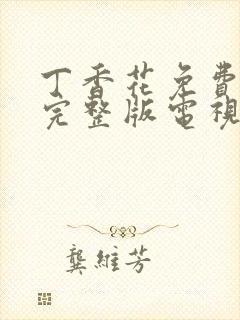 丁香花免費
完整版電視
龔維芳